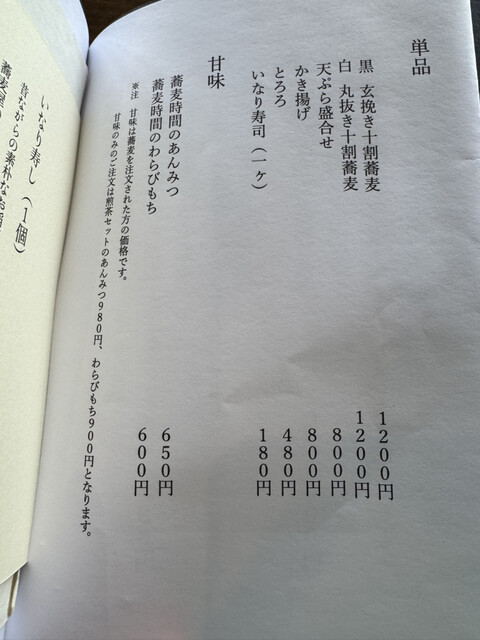 単品
黒 玄挽き十割蕎麦 1200円
白 丸抜き十割蕎麦 1200円
天ぷら盛合せ 800円
かき揚げ 800円
とろろ 480円
いなり寿司(一ヶ) 180円
甘味
蕎麦時間のあんみつ 650円
蕎麦時間のわらびもち 600円
※注 甘味は蕎麦を注文された方の価格です。
甘味のみのご注文は煎茶セットのあんみつ980円、わらびもち900円となります。
いなり寿し(1個)
昔ながらの素朴な